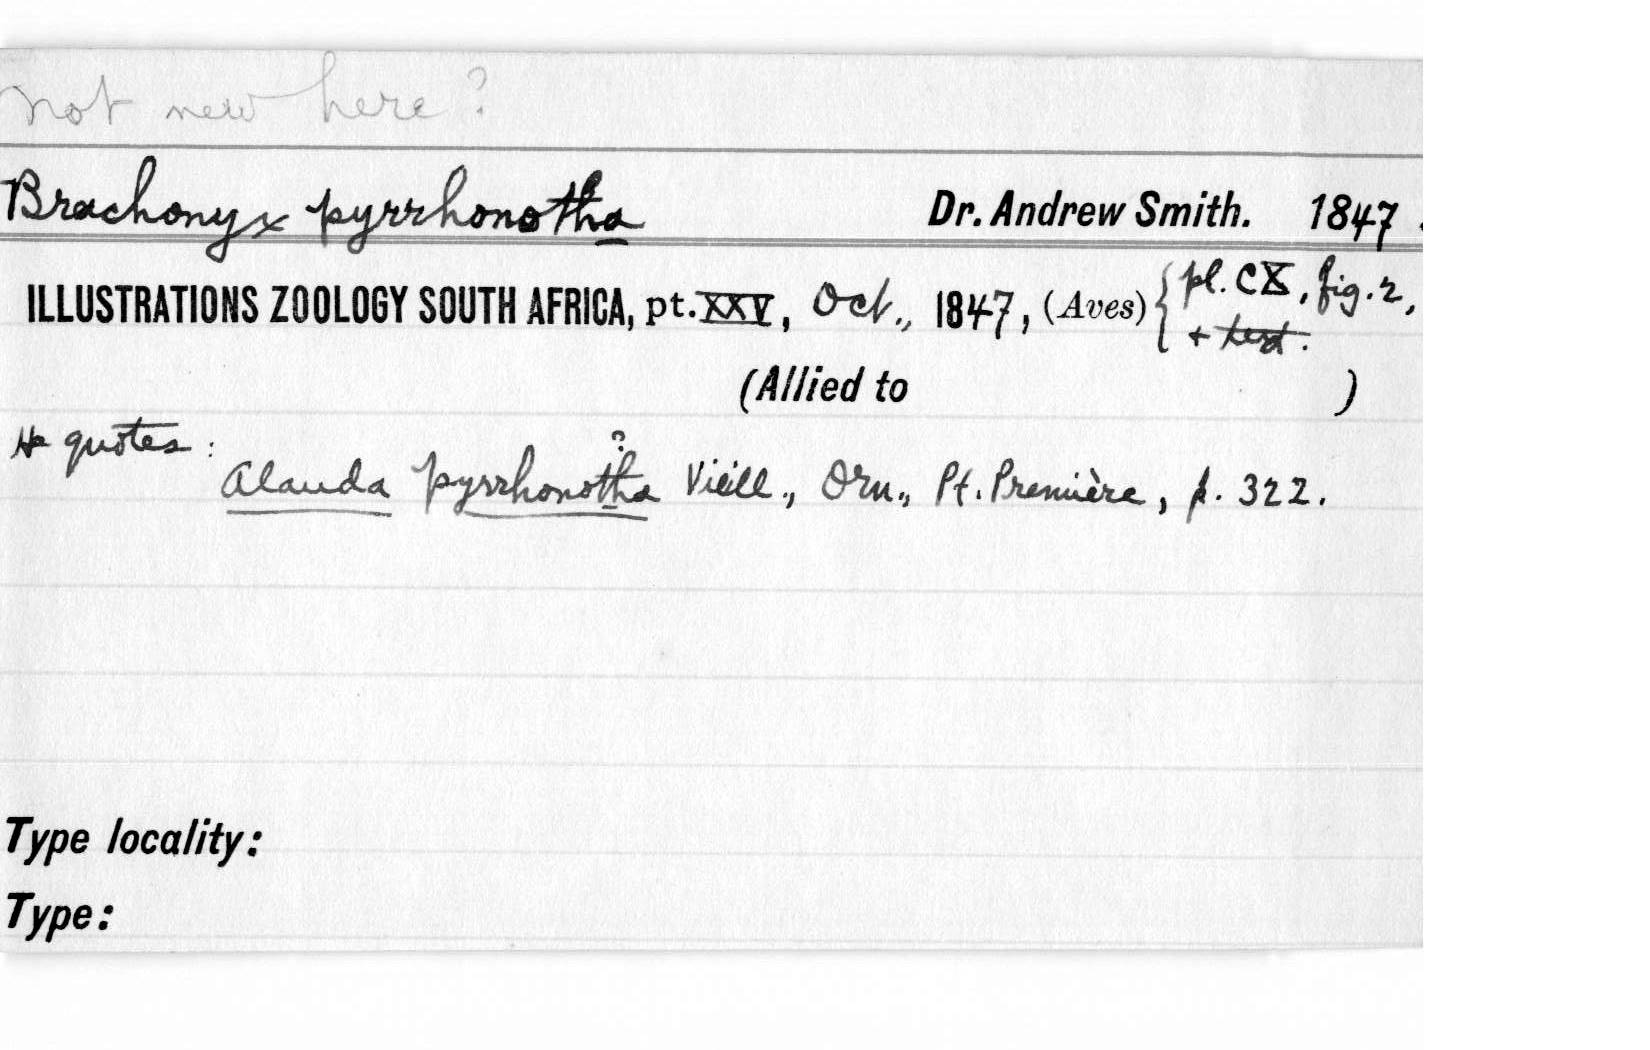 not new here?
Brachonyx pyrrhonotha Dr. Andrew Smith. 1847.
ILLUSTRATIONS ZOOLOGY SOUTH AFRICA, pt. XXV, Oct., 1847, (Aves) { pl. CX, fig. 2,
+ text.
(Allied to )
He quotes:
?
Alauda pyrrhonotha Vieill., Orn., Pt. Première, p. 322.
Type locality:
Type: